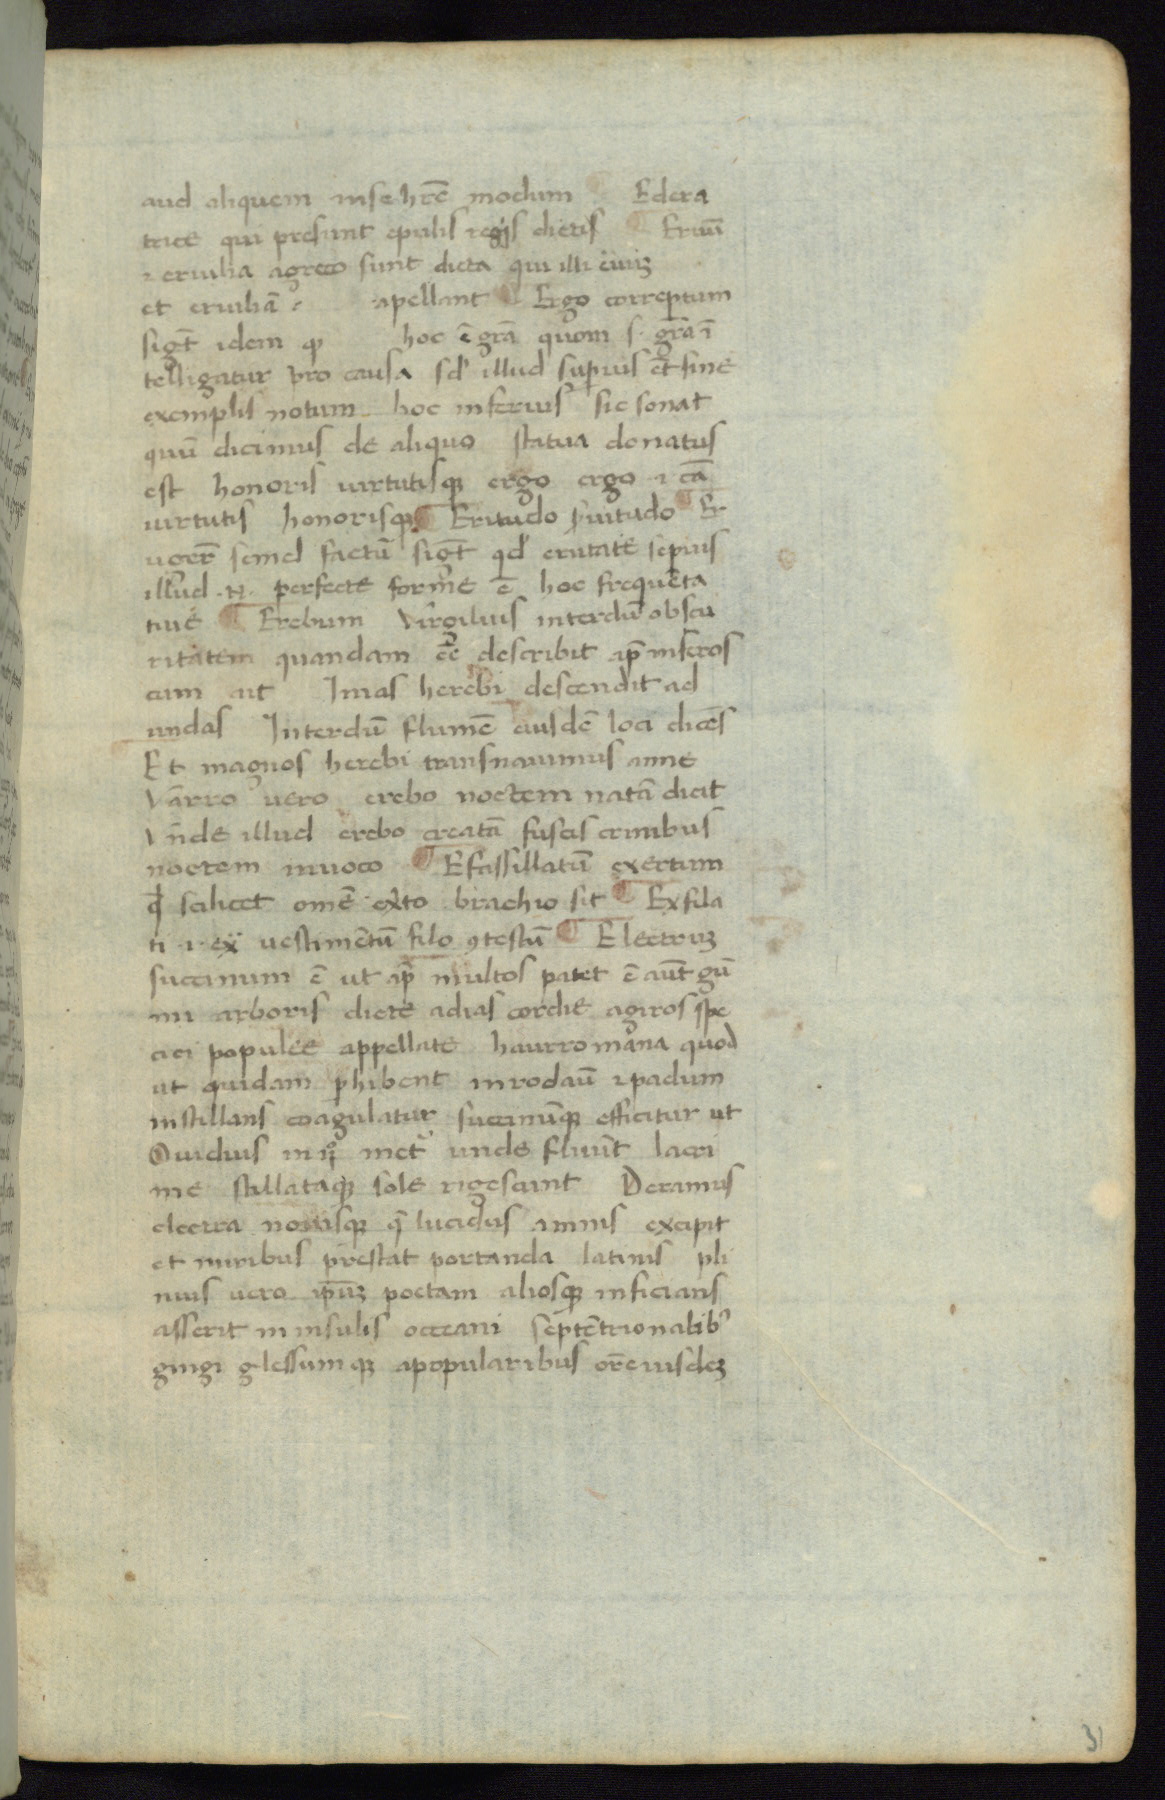 aud aliquem inse hr̄e modum Edera
trice qui presunt epulis regijs dictis ¶ Eruū
⁊ eruilia agreco sunt dicta qui illi
et eruiliā apellant ¶ Ergo correptum
sigt̄ idem ꝙ hoc ē grā quom s. grā ī
telligatur pro causa sd' illud supius et sine
exemplis notum hoc inferius sic sonat
quū dicimus de aliquo statua donatus
est honoris uirtutisqꝫ ergo ergo .i. cā
uirtutis honorisqꝫ ¶ Eritudo suitudo ¶ Er
semel factū sigt̄ qd' erutate sepius
illud .N. perfecte forme ē hoc frequēta
tiue ¶ Erebum Virgilius interdū obscu
ritatem quandam ēe describit ap̄ inferos
cum ait Imas herebi descendit ad
undas Interdū flumē eiusdē loci dicēs
Et magnos herebi transnauimus amne
Varro uero erebo noctem natā dicit
Vn̄de illud erebo creatā fuscis crinibus
noctem inuoco ¶ Efassillatū exertum
qđ scilicet omē exto brachio sit ¶ Exfila
ti .i. ex uestimētū filo ꝯtestū ¶ Electruꝫ
succinum ē ut ap̄ multos patet ē aūt gū
mi arboris dicte adias cordie agiros spe
ciei populee appellate haurro mana quod
ut quidam phibent inrodaū ⁊ padum
instillans coagulatur succinūqꝫ efficitur ut
Ouidius in ijº met̄ unde fluūt lacri
me stillataqꝫ sole rigescunt Deramus
electra nouisqꝫ q̄ lucidus amnis excipit
et nuribus prestat portanda latinis pli
nius uero ipūꝫ poetam aliosqꝫ inficians
asserit in insulis occeani septētrionalibꝰ
gingi glessumqꝫ apopularibus ore iusdeꝫ
31